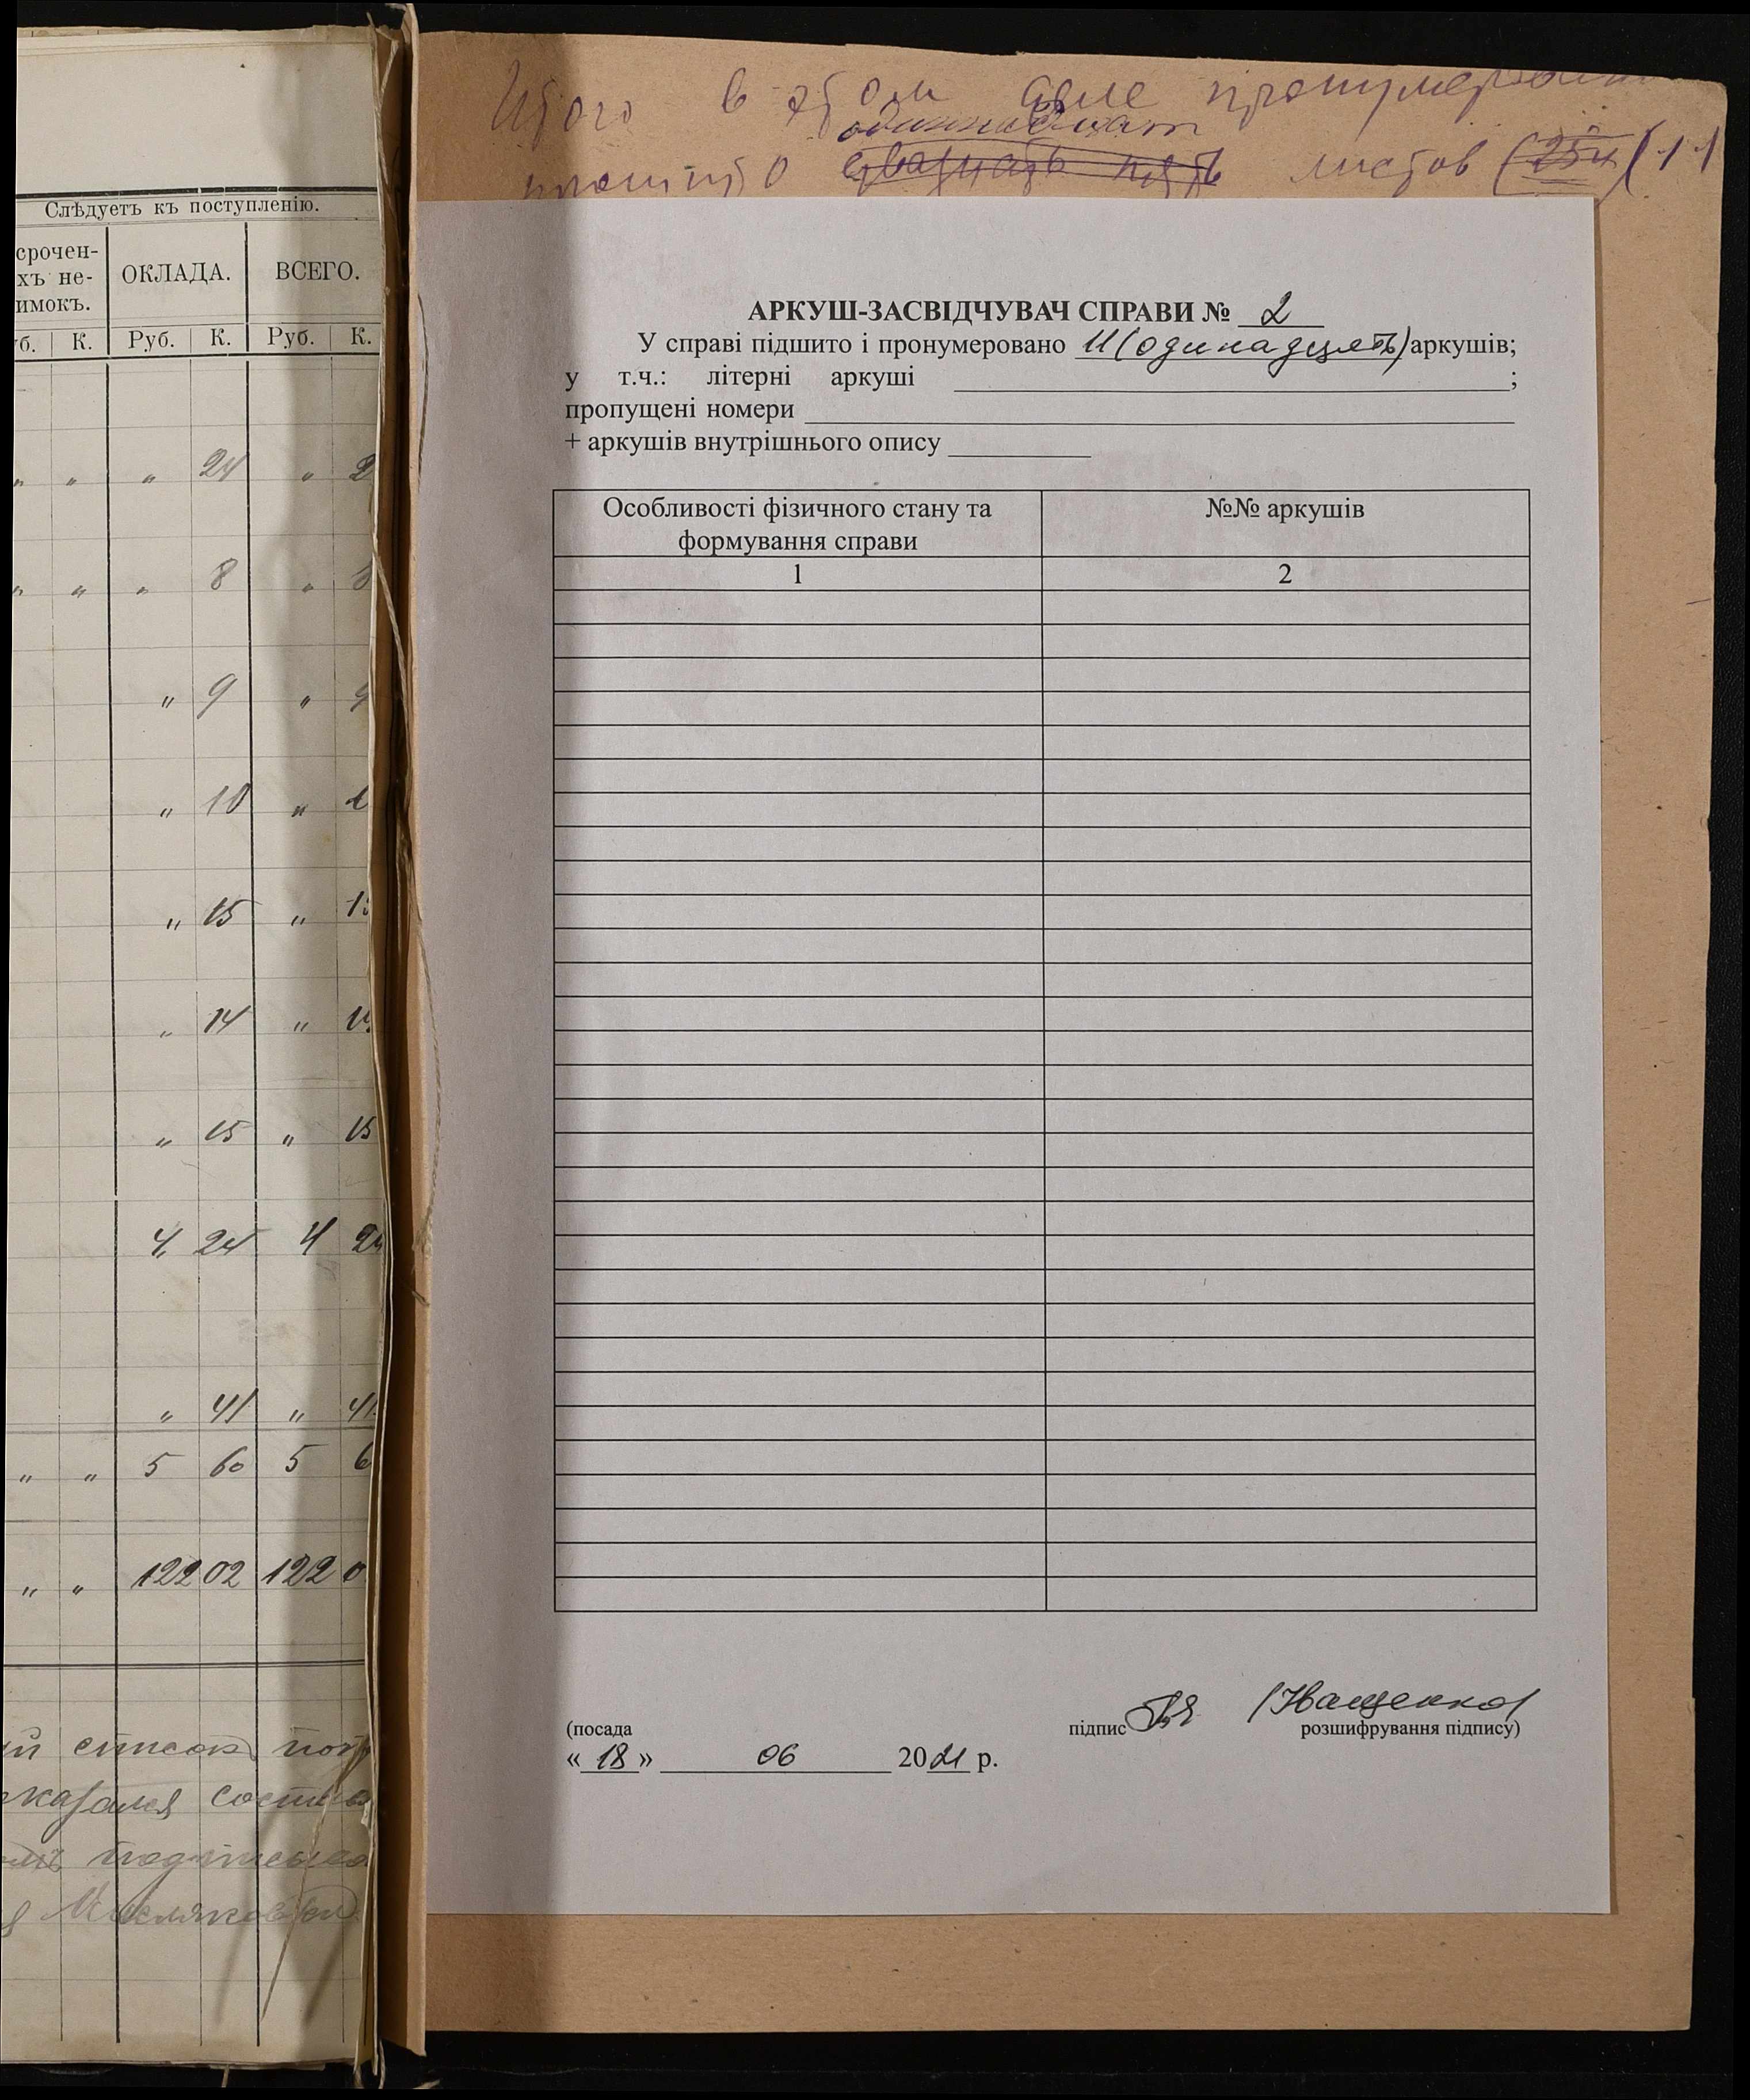 Слѣдуетъ къ поступленію.
срочен-
хъ не-
имокъ.
ОКЛАДА.
ВСЕГО.
б. К. Руб. К. Руб. К.
" " " 24 " 2
" " " 8 " 8
" 9 " 9
" 10 " 1
" 15 " 1
" 14 " 1
" 15 " 15
4 24 4 24
" 41 " 41
" " 5 60 5 6
" " 122 02 122 0
список
казался
Итого в этом деле пронумеровано
одиннадцат
прошито двадцать пять листов (25л) (11
АРКУШ-ЗАСВІДЧУВАЧ СПРАВИ № 2
У справі підшито і пронумеровано 11 (одинадцять) аркушів;
у т.ч.: літерні аркуші ;
пропущені номери
+ аркушів внутрішнього опису
Особливості фізичного стану та
формування справи
№№ аркушів
1 2
(посада підпис (Іващенко)
розшифрування підпису)
« 18 » 06 2021 р.